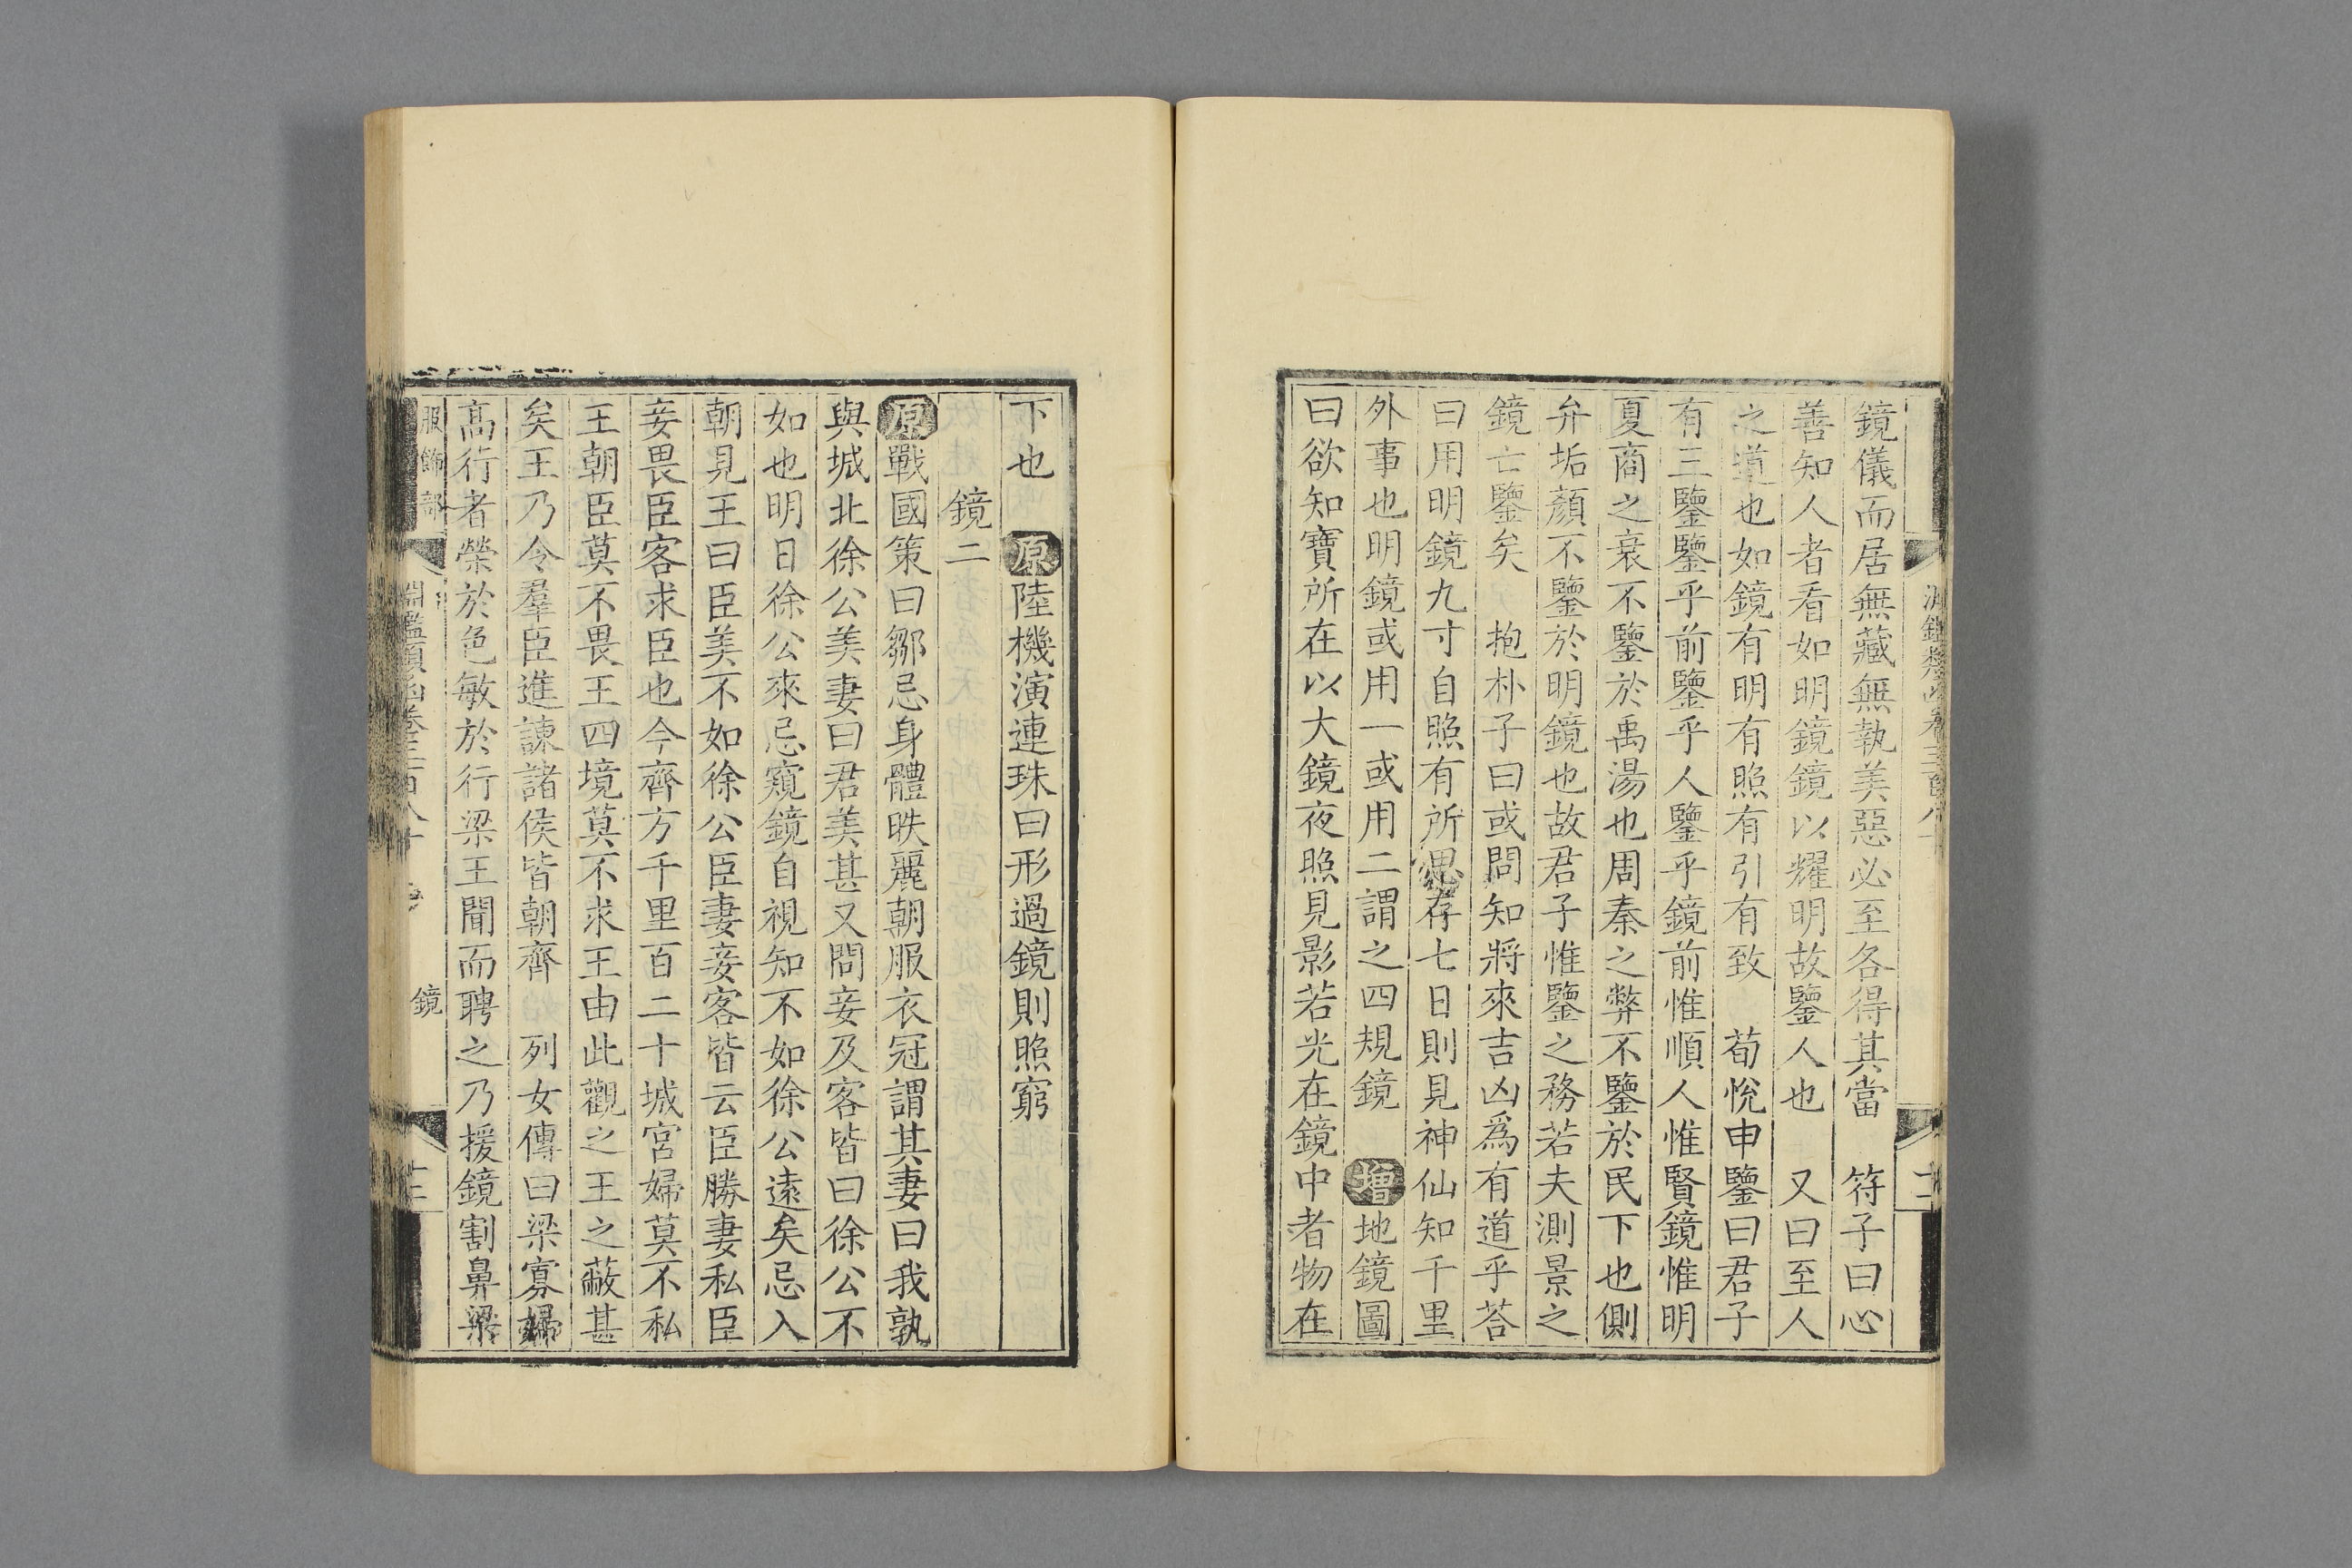 鏡儀而居無藏無執美惡必至各得其當　符子曰心
善知人者看如明鏡鏡以耀明故鑒人也　又曰至人
之道也如鏡有明有照有引有致　荀悅申鑒曰君子
有三鑒鑒乎前鑒乎人鑒乎鏡前惟順人惟賢鏡惟明
夏商之衰不鑒於禹湯也周秦之弊不鑒於民下也側
弁垢顏不鑒於明鏡也故君子惟鑒之務若夫測景之
鏡亡鑒矣　抱朴子曰或問知將來吉凶爲有道乎荅
曰用明鏡九寸自照有所思存七日則見神仙知千里
外事也明鏡或用一或用二謂之四規鏡　增地鏡圖
曰欲知寶所在以大鏡夜照見影若光在鏡中者物在
下也　原陸機演連珠曰形過鏡則照窮
鏡二
原戰國策曰鄒忌身體昳麗朝服衣冠謂其妻曰我孰
與城北徐公美妻曰君美甚又問妾及客皆曰徐公不
如也明日徐公來忌窺鏡自視知不如徐公遠矣忌入
朝見王曰臣美不如徐公臣妻妾客皆云臣勝妻私臣
妾畏臣客求臣也今齊方千里百二十城宮婦莫不私
王朝臣莫不畏王四境莫不求王由此觀之王之蔽甚
矣王乃令羣臣進諫諸侯皆朝齊　列女傳曰梁寡婦
高行者榮於色敏於行梁王聞而聘之乃援鏡割鼻梁
服飾部　淵鑑類函卷三百八十　鏡　十三